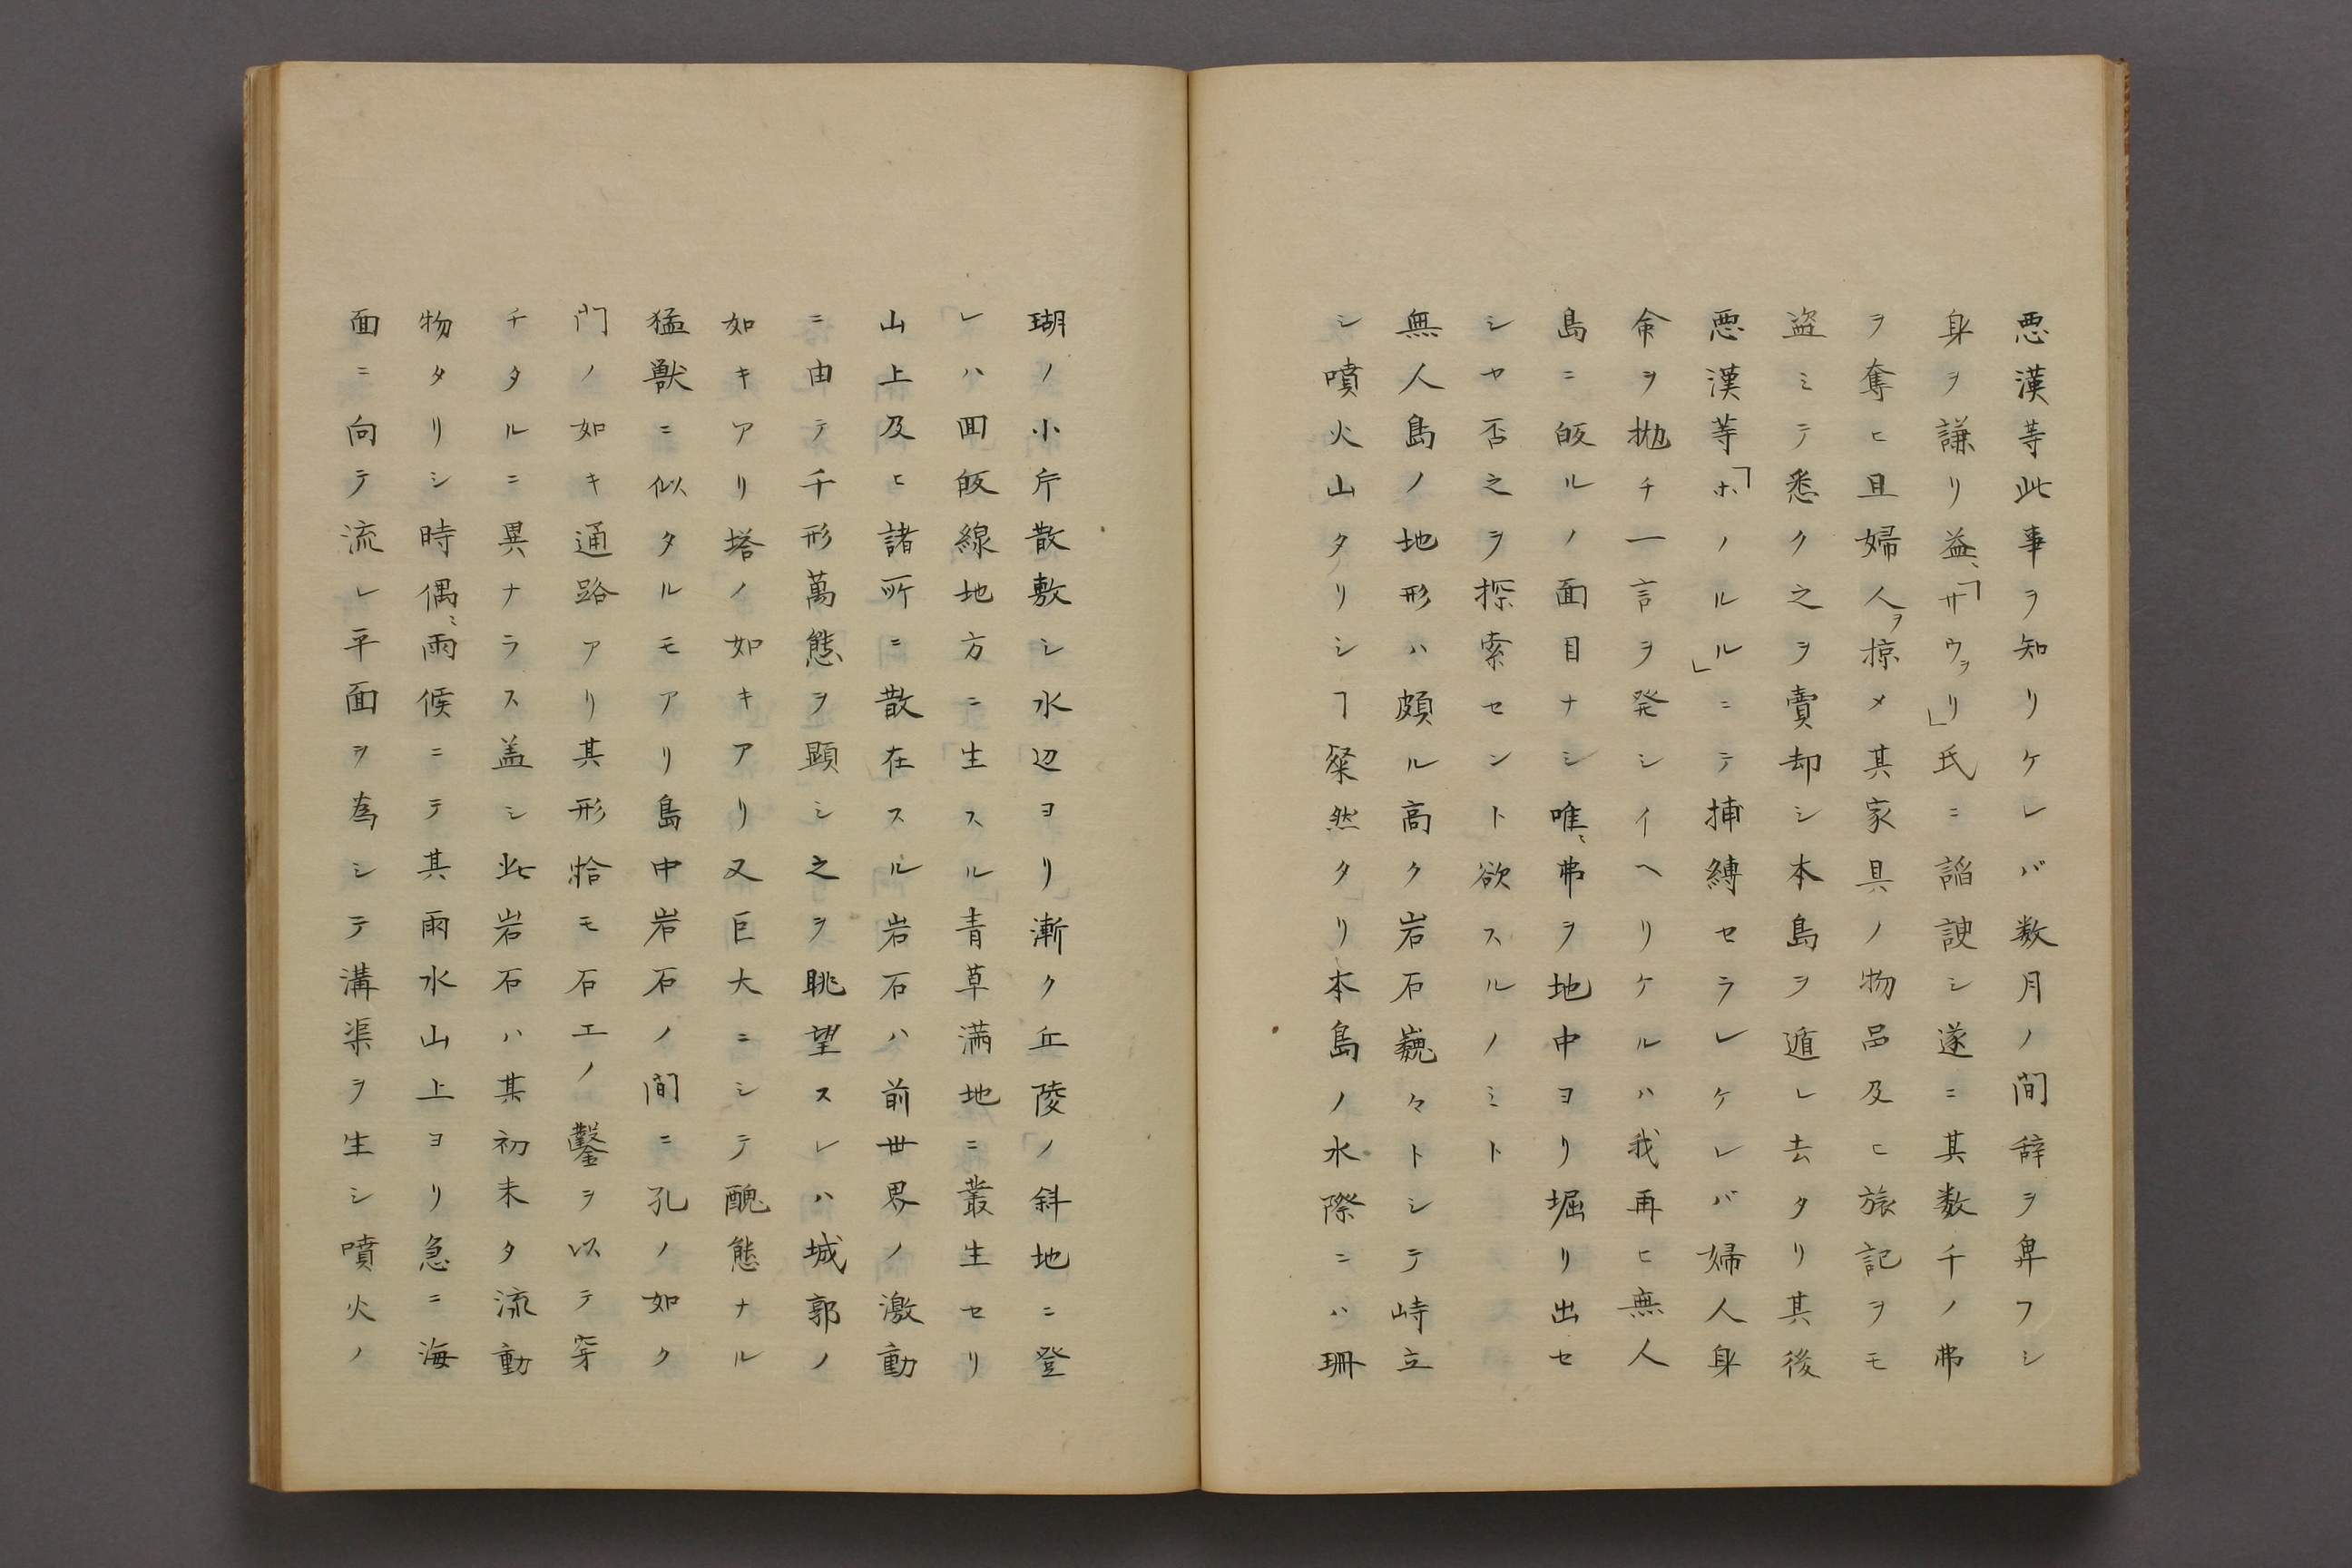 悪漢等此事ヲ知リケレバ数月ノ間辞ヲ卑フシ
身ヲ謙リ益〻「サウヲリ」氏ニ諂諛シ遂ニ其数千ノ弗
ヲ奪ヒ且婦人ヲ掠メ其家具ノ物品及ヒ旅記ヲモ
盗ミテ悉ク之ヲ賣却シ本島ヲ遁レ去タリ其後
悪漢等「ホノルル」ニテ捕縛セラレケレバ婦人身
命ヲ拋チ一言ヲ発シイヘリケルハ我再ヒ無人
島ニ皈ルノ面目ナシ唯〻弗ヲ地中ヨリ堀リ出セ
シヤ否之ヲ探索セント欲スルノミト
無人島ノ地形ハ頗ル高ク岩石巍々トシテ峙立
シ噴火山タリシヿ粲然タリ本島ノ水際ニハ珊
瑚ノ小斤散敷シ水辺ヨリ漸ク丘陵ノ斜地ニ登
レハ回皈線地方ニ生スル青草満地ニ叢生セリ
山上及ヒ諸所ニ散在スル岩石ハ前世界ノ激動
ニ由テ千形萬態ヲ顕シ之ヲ眺望スレハ城郭ノ
如キアリ塔ノ如キアリ又巨大ニシテ醜態ナル
猛獣ニ似タルモアリ島中岩石ノ間ニ孔ノ如ク
門ノ如キ通路アリ其形恰モ石工ノ鑿ヲ以テ穿
チタルニ異ナラス盖シ此岩石ハ其初未タ流動
物タリシ時偶〻雨候ニテ其雨水山上ヨリ急ニ海
面ニ向テ流レ平面ヲ為シテ溝渠ヲ生シ噴火ノ